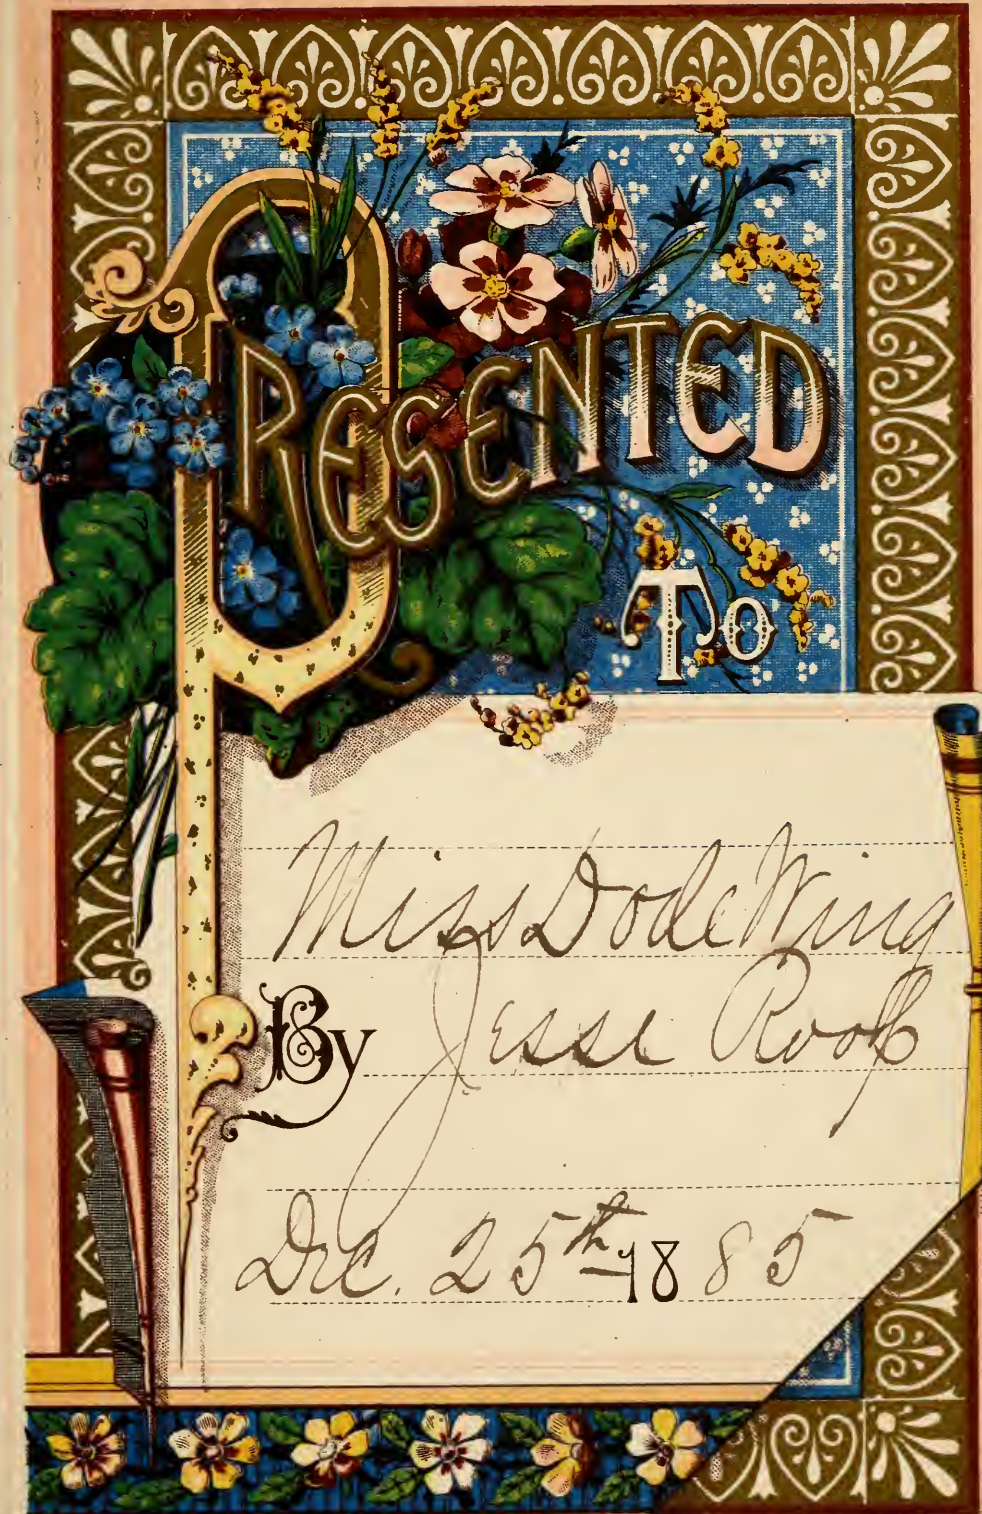 PRESENTED
To
Miss Dode Wing
By Jesse Roof
Dec. 25th 1885